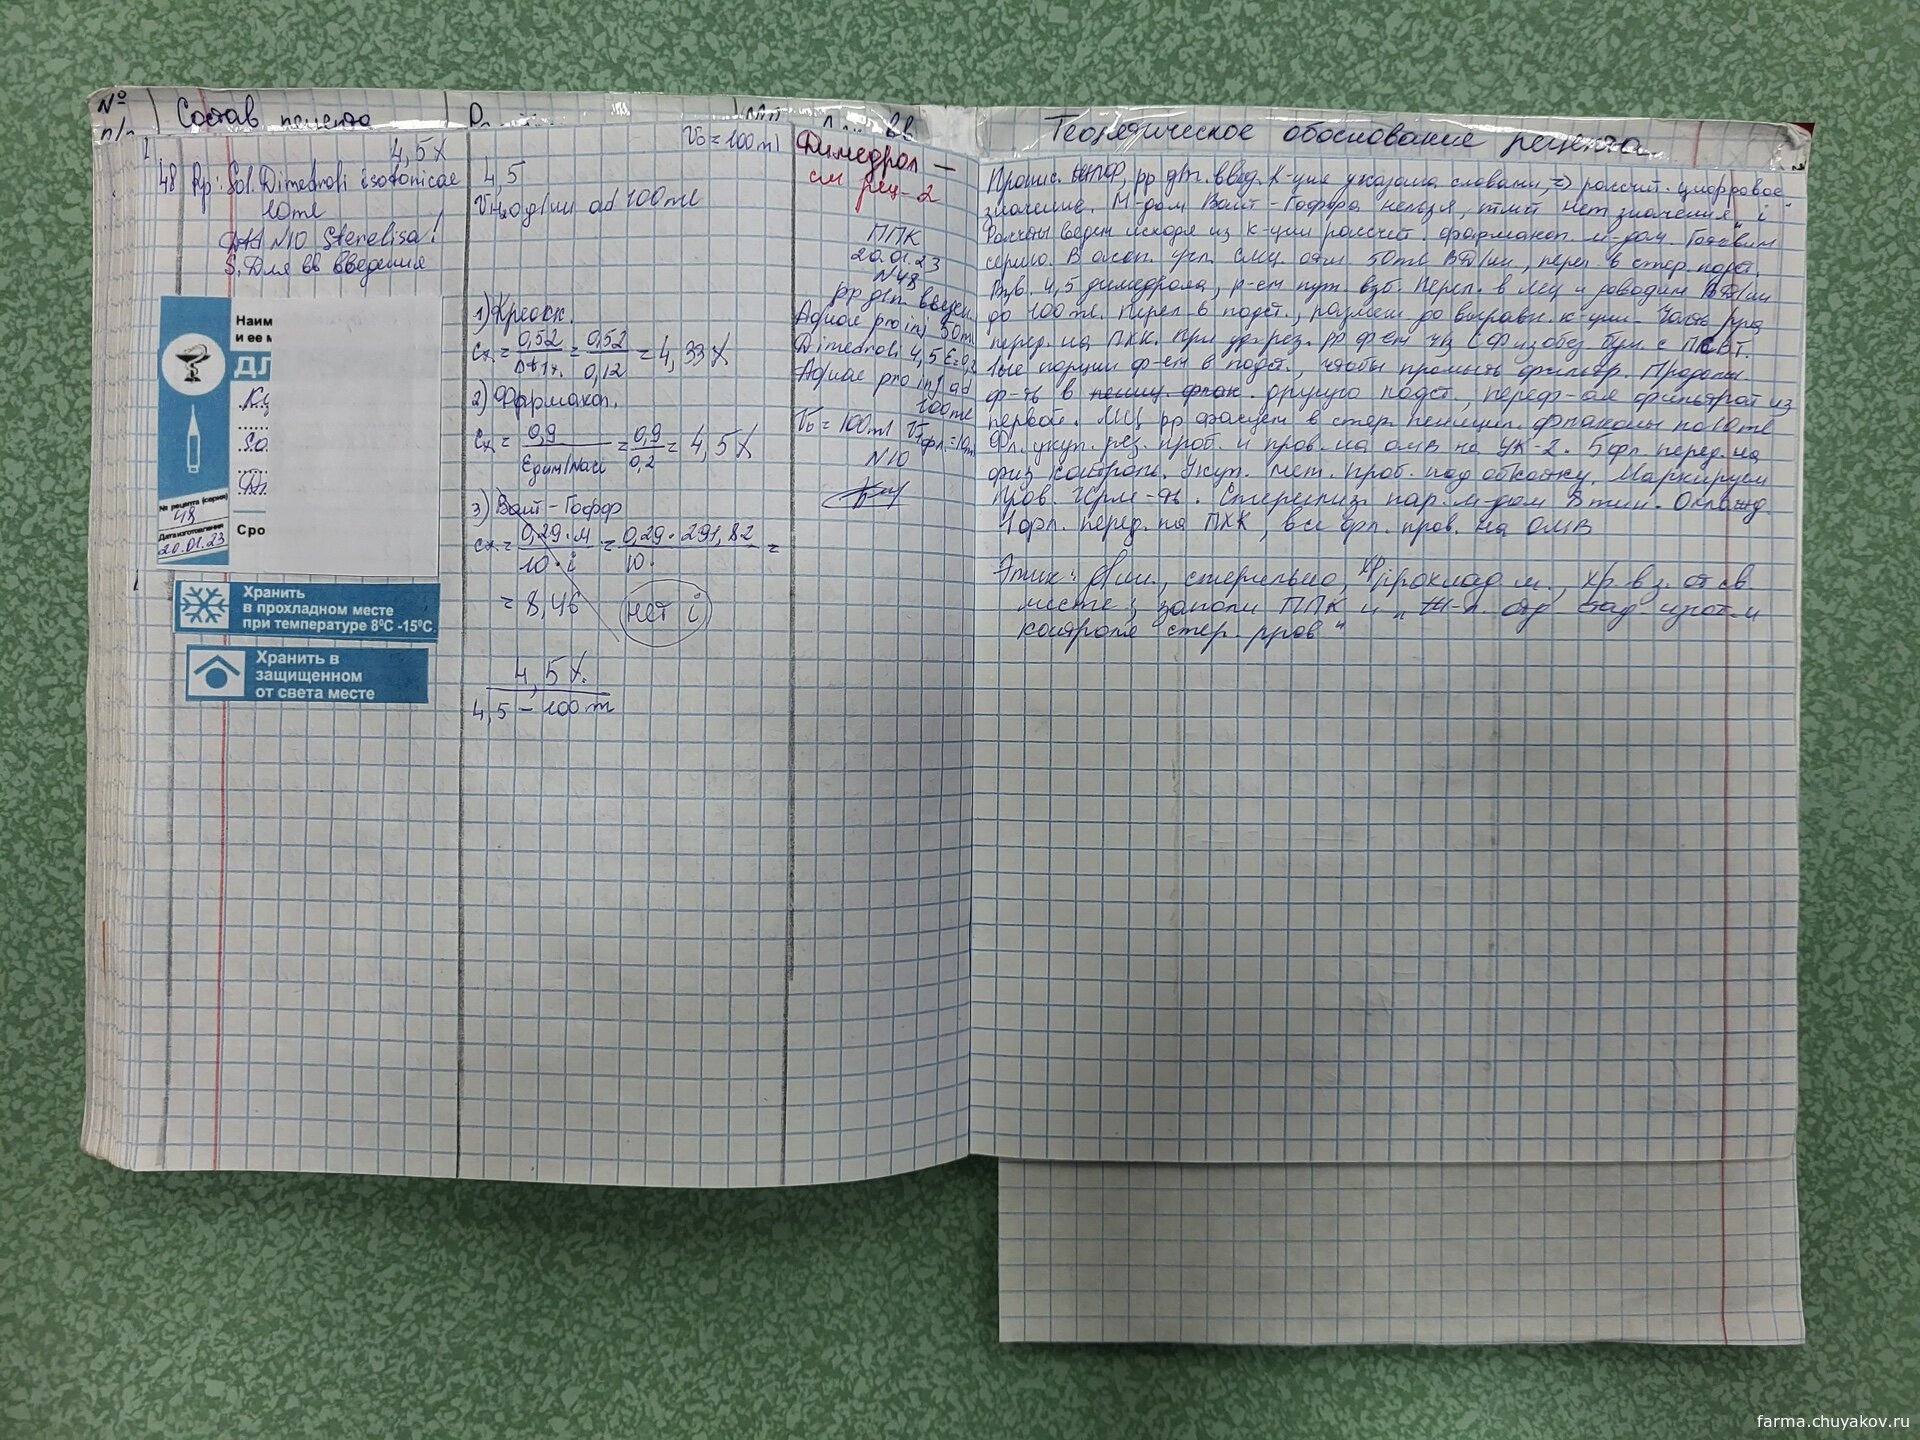 № п/п
Состав рецепта
Теоретическое обоснование рецепта
4,5%
48 Rp: Sol. Dimedroli isotonicae
10ml
DtdN10 Sterelisa!
S. Для вв введения
Наим
и ее м
ДЛ
№ рецепта (серия)
48
Дата изготовления
20.01.23
Сро
Хранить
в прохладном месте
при температуре 8⁰С -15⁰С.
Хранить в
защищенном
от света месте
V₀ = 100ml
4,5
VH₂O д/ин ad 100ml
1) Криоск.
Cx = 0,52/Δt1% = 0,52/0,12 = 4,33%
2) Фармакоп.
Cx = 0,9/Eдим/NaCl = 0,9/0,2 = 4,5%
3) Вант-Гофф
Cx = 0,29·M/10·i = 0,29·291,82/10· =
= 8,46 нет i
4,5%
4,5 – 100ml
Димедрол —
см рец-2
ППК
20.01.23
N48
рр д/ин введен
Aquae pro inj 50ml
Dimedroli 4,5
Aquae pro inj ad
100ml
V₀ = 100ml Vфл = 10ml
N10
Пропис. рр д/ин. введ. К-ция указана словами, => рассчит. цифровое
значение. М-дом Вант-Гоффа нельзя, тк нет значения "i"
Расчеты ведем исходя из к-ции рассчит. фармакоп. м-дом. Готовим
серию. В асеп. усл. 50ml ВД/ин, перел. в стер. подст.
Взв. 4,5 димедрола, р-ем пут. взб. Перел. в мц и доводим ВД/ин
до 100ml. Перел. в подст., размеш до выравн. к-ции. Часть рра
перед. на ПХК. При уд. рез. рр ф-ем ч/з
1ые порции ф-ем в подст., чтобы промыть фильтр. Продолж.
ф-ть в другую подст., переф-ая фильтрат из
первой. МЦ рр фасуем в стер. пеницил. флаконы по 10ml
Фл. укуп. рез. проб. и пров. на ОМВ на УК-2. 5 фл. перед. на
физ контроль. Укуп. мет. проб. под обкатку. Маркируем
Пров. герм-ть. Стерилиз. пар. м-дом 8 мин. Охлажд.
1 фл. перед. на ПХК, все фл. пров. на ОМВ
Этик: Д/ин., стерильно, Хр в прохлад м., хр. в з. от св.
месте; заполн ППК и
контроля стер. рров"
farma.chuyakov.ru